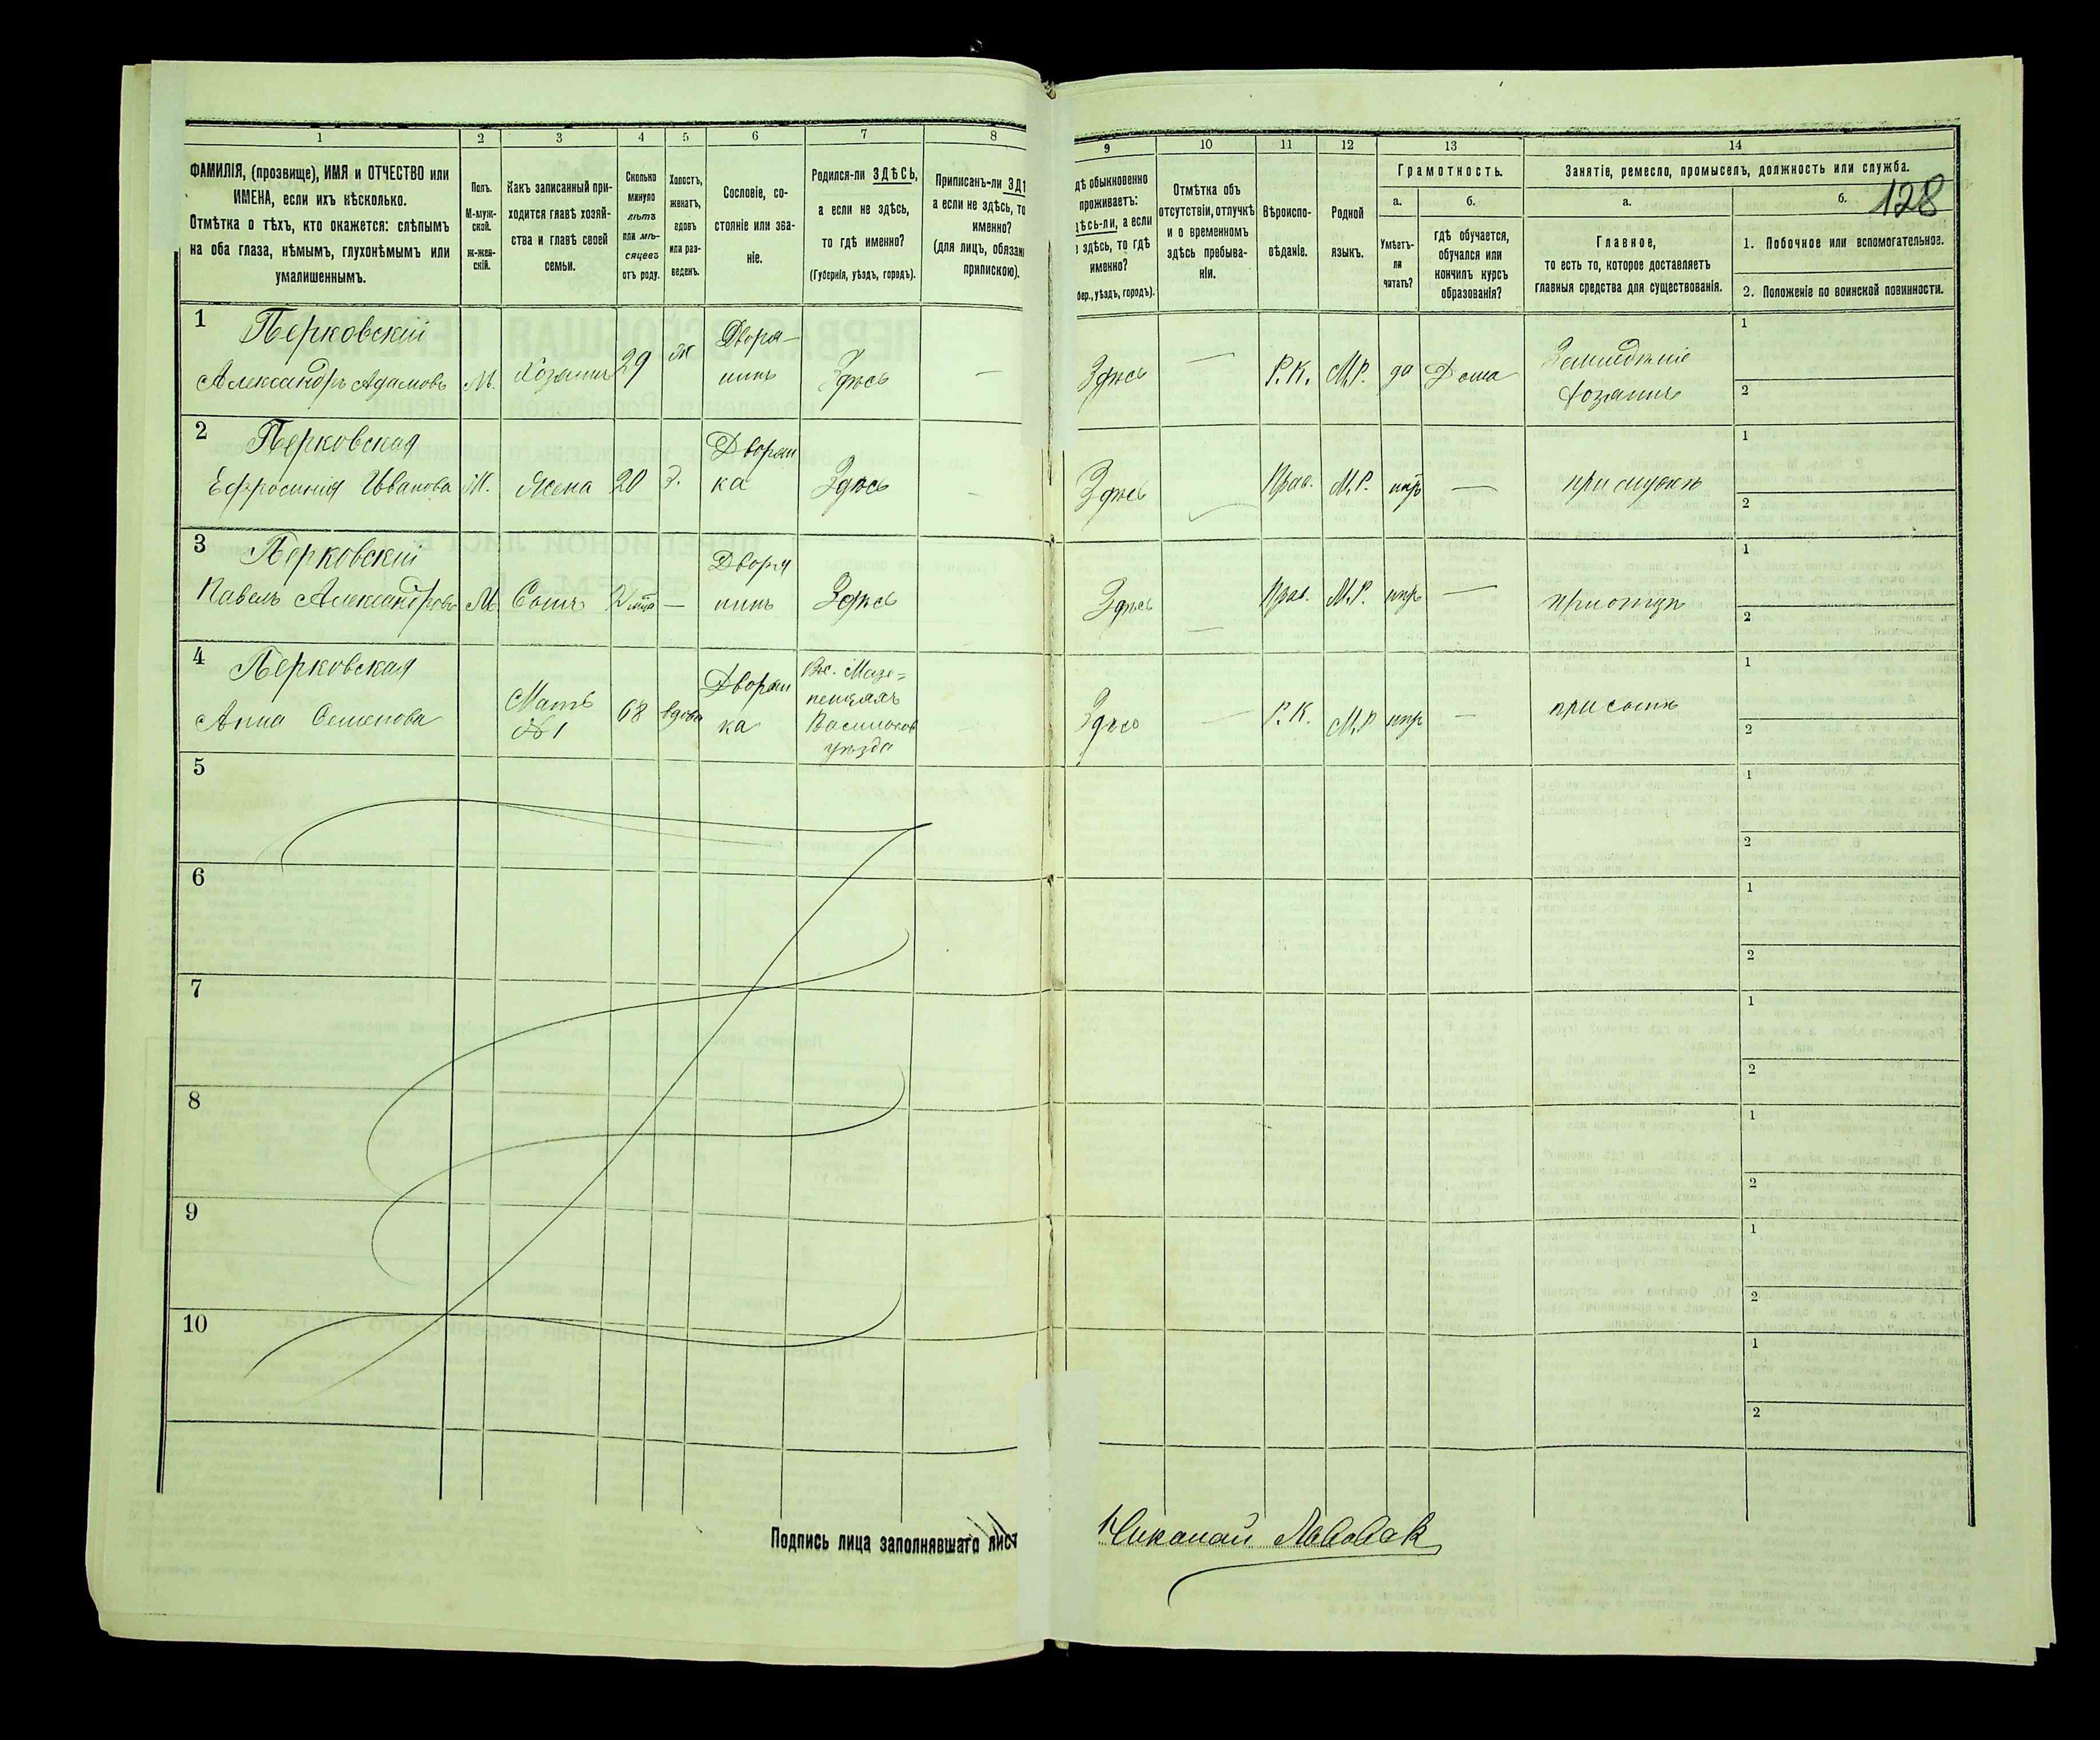 1 2 3 4 5 6 7 8
ФАМИЛІЯ, (прозвище), ИМЯ и ОТЧЕСТВО или
ИМЕНА, если ихъ нѣсколько.
Отмѣтка о тѣхъ, кто окажется: слѣпымъ
на оба глаза, нѣмымъ, глухонѣмымъ или
умалишеннымъ.
Полъ.
М-муж-
ской.
ж-жен-
скій.
Какъ записанный при-
ходится главѣ хозяй-
ства и главѣ своей
семьи.
Сколько
минуло
лѣтъ
или мѣ-
сяцевъ
отъ роду.
Холостъ,
женатъ,
вдовъ
или раз-
веденъ.
Сословіе, со-
стояніе или зва-
ніе.
Родился-ли ЗДѢСЬ,
а если не здѣсь,
то гдѣ именно?
(Губернія, уѣздъ, городъ).
Приписанъ-ли ЗД
а если не здѣсь, то
именно?
(для лицъ, обязан
припискою).
1 Перковскій
Александръ Адамовъ М. Хозяинъ 29 ж Дворя-
нинъ Здѣсь —
2 Перковская
Ефросинія Иванова Ж. Жена 20 З. Дворян
ка Здѣсь -
3 Перковскій
Павелъ Александровъ М Сынъ 2 мца — Дворя
нинъ Здѣсь
4 Перковская
Анна Семенова Мать
№ 1 68 вдова Дворян
ка Въ с. Мазе=
пенцахъ
Васильков
уѣзда
5
6
7
8
9
10
Подпись лица заполнявшаго лист
9 10 11 12 13 14
дѣ обыкновенно
проживаетъ:
дѣсь-ли, а если
здѣсь, то гдѣ
именно?
бер., уѣздъ, городъ).
Отмѣтка объ
отсутствіи, отлучкѣ
и о временномъ
здѣсь пребыва-
ніи.
Вѣроиспо-
вѣданіе.
Родной
языкъ.
Грамотность.
а. б.
Умѣетъ-
ли
читать?
гдѣ обучается,
обучался или
кончилъ курсъ
образованія?
Занятіе, ремесло, промыселъ, должность или служба.
а. б. 128
Главное,
то есть то, которое доставляетъ
главныя средства для существованія.
1. Побочное или вспомогательное.
2. Положеніе по воинской повинности.
Здѣсь — Р.К. М.Р. да Дома Земледѣліе
хозяинъ 1
2
Здѣсь Прав. М.Р. нѣтъ — при мужѣ 1
2
Здѣсь — Прав. М.Р. нѣтъ — при отцѣ 1
2
Здѣсь — Р.К. М.Р нѣтъ — при сынѣ 1
2
1
2
1
2
1
2
1
2
1
2
1
2